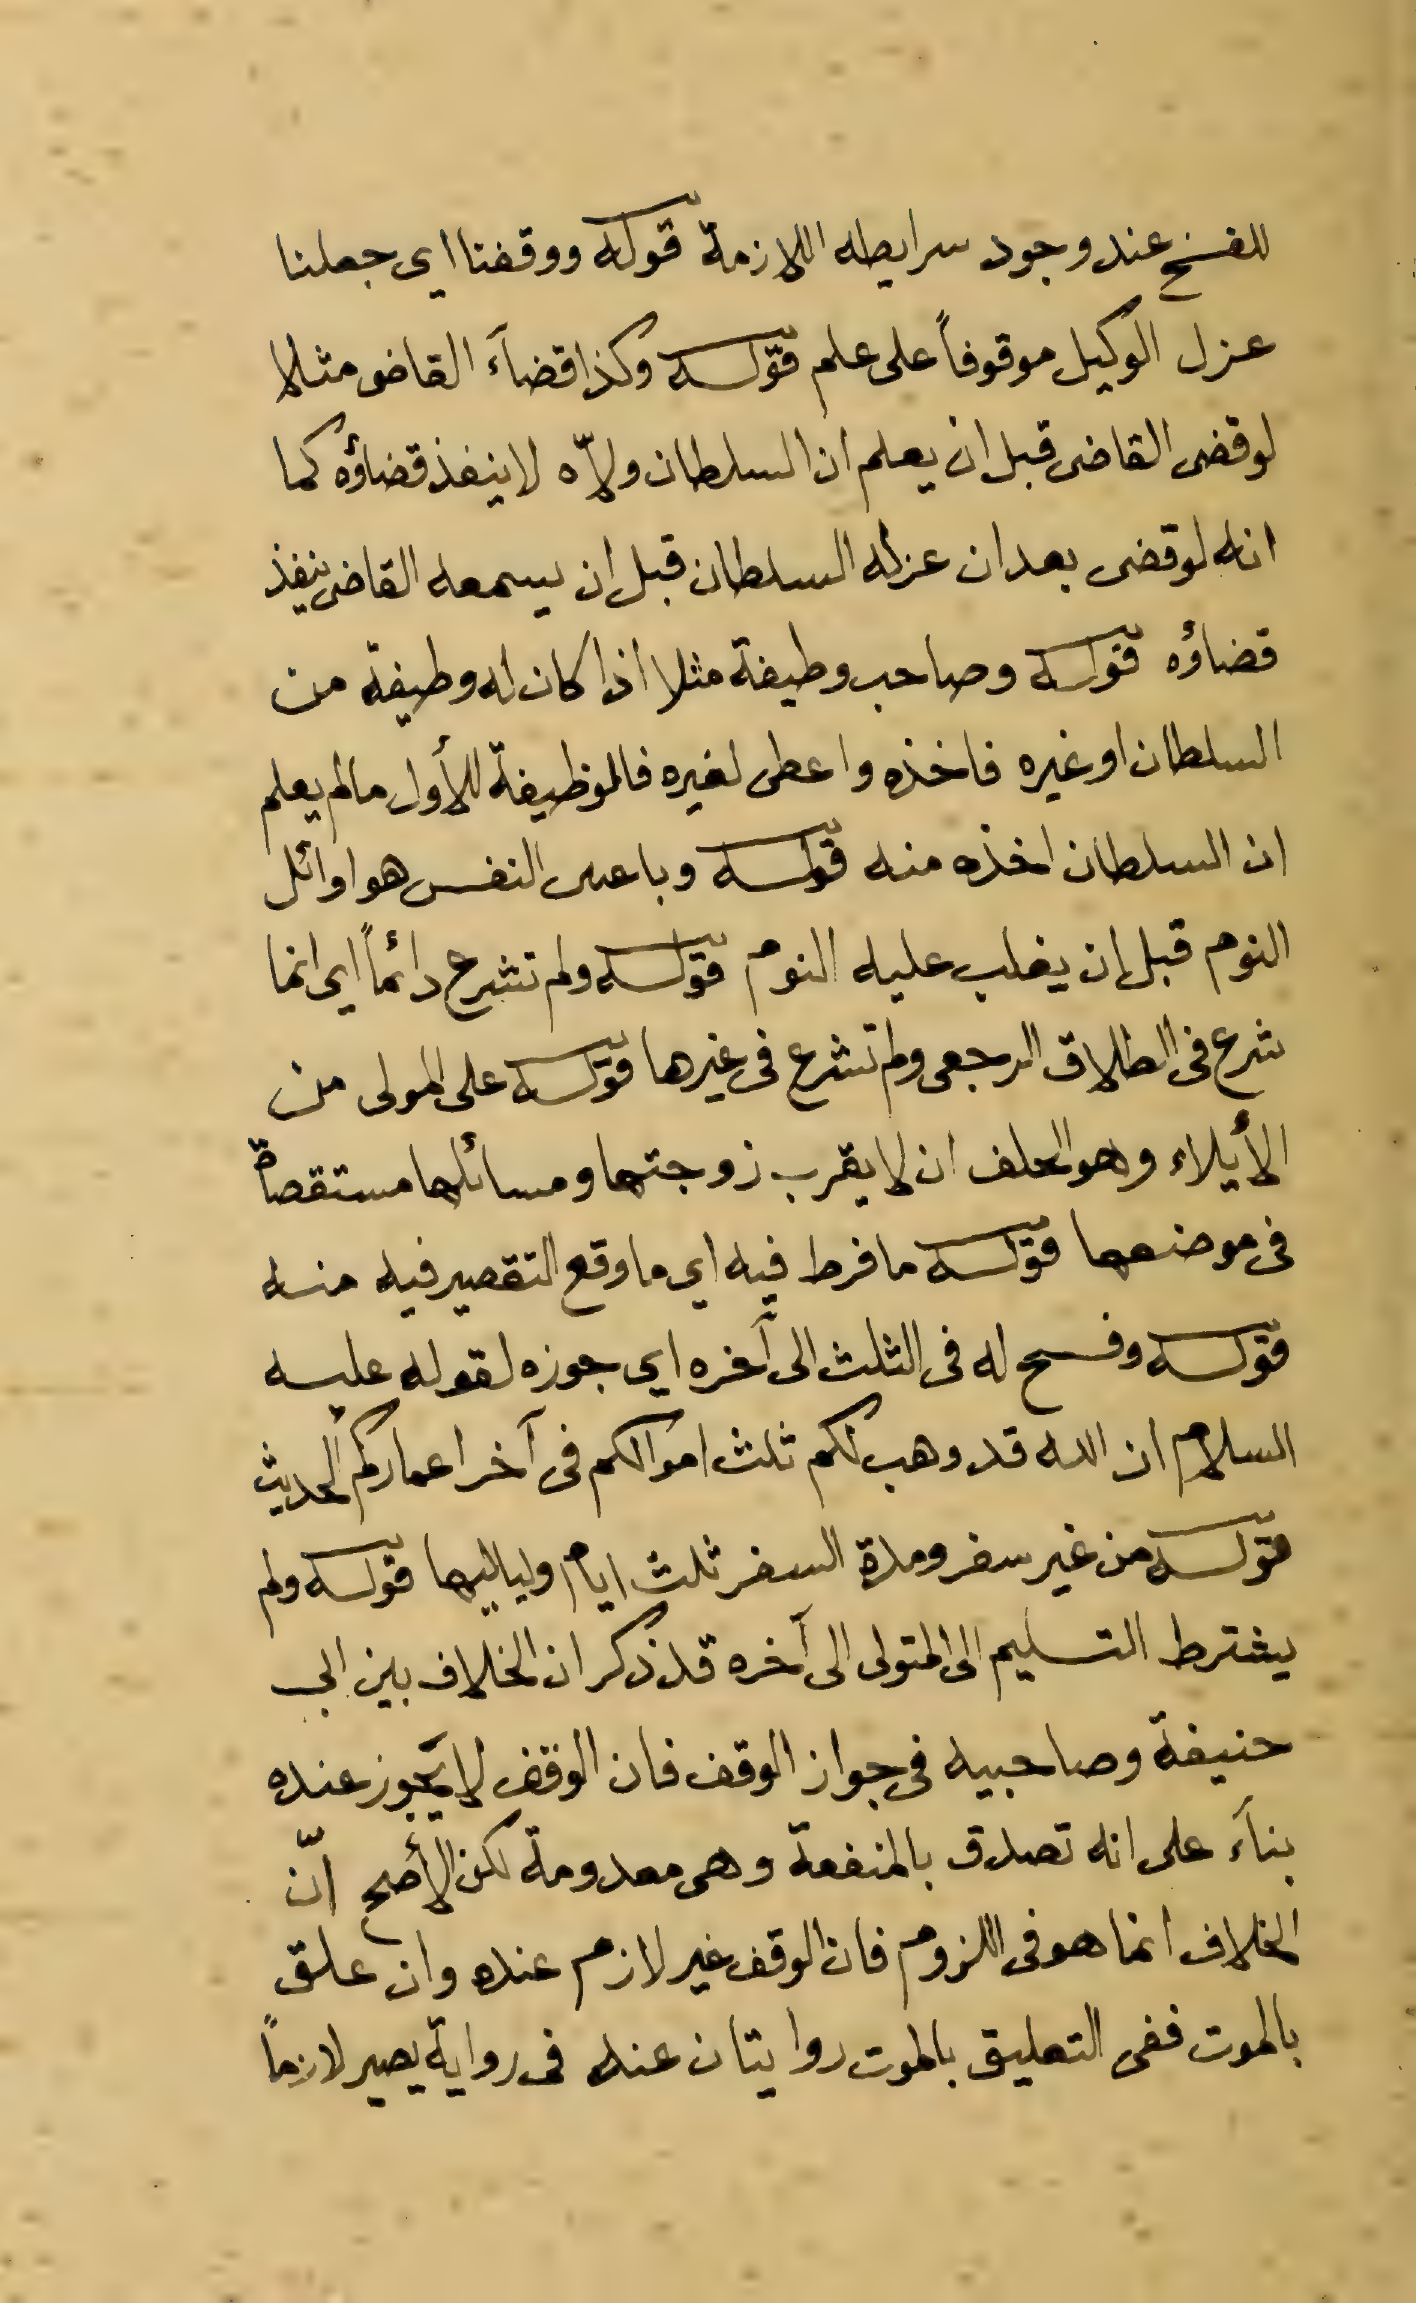 للفسخ عند وجود سرايطه اللازمة قوله ووقفنا اى جعلنا
عزل الوكيل موقوفاً على علم قوله وكذا قضاء القاضى مثلا
لو قضى القاضى قبل ان يعلم ان السلطان ولاّه لا ينفذ قضاؤه كما
انه لو قضى بعد ان عزله السلطان قبل ان يسمعه القاضى ينفذ
قضاؤه قوله وصاحب وظيفة مثلا اذا كان له وظيفة من
السلطان او غيره فاخذه واعطى لغيره فالوظيفة للأول مالم يعلم
ان السلطان اخذه منه قوله وباعس النفس هو اوائل
النوم قبل ان يغلب عليه النوم قوله ولم تشرع دائماً اى انما
شرع فى الطلاق الرجعى ولم تشرع فى غيرها قوله على المولى من
الأيلاء وهو الحلف ان لا يقرب زوجتها ومسائلها مستقصاة
فى موضعها قوله ما فرط فيه اى ما وقع التقصير فيه منه
قوله وفسح له فى الثلث الى آخره اى جوزه لقوله عليه
السلام ان الله قد وهب لكم ثلث اموالكم فى آخر اعماركم الحديث
قوله من غير سفر ومدة السفر ثلث ايام ولياليها قوله ولم
يشترط التسليم الى المتولى الى آخره قد ذكر ان الخلاف بين ابى
حنيفة وصاحبيه فى جواز الوقف فان الوقف لا يجوز عنده
بناء على انه تصدق بالمنفعة وهى معدومة لكن الأصح انّ
الخلاف انما هو فى اللزوم فان الوقف غير لازم عنده وان علق
بالموت ففى التعليق بالموت روايتان عنده فى رواية يصير لازماً